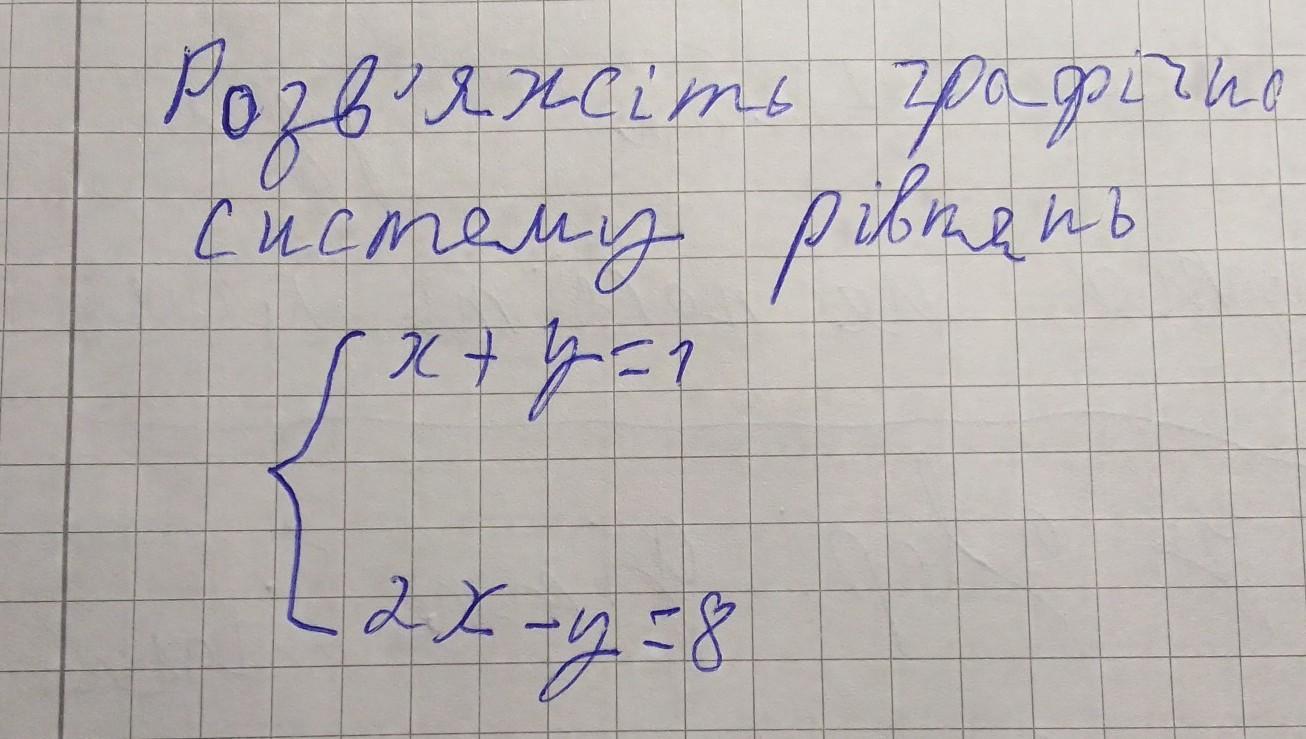 Розв'яжсіть графічно
систему рівнянь
x + y = 1
2x - y = 8